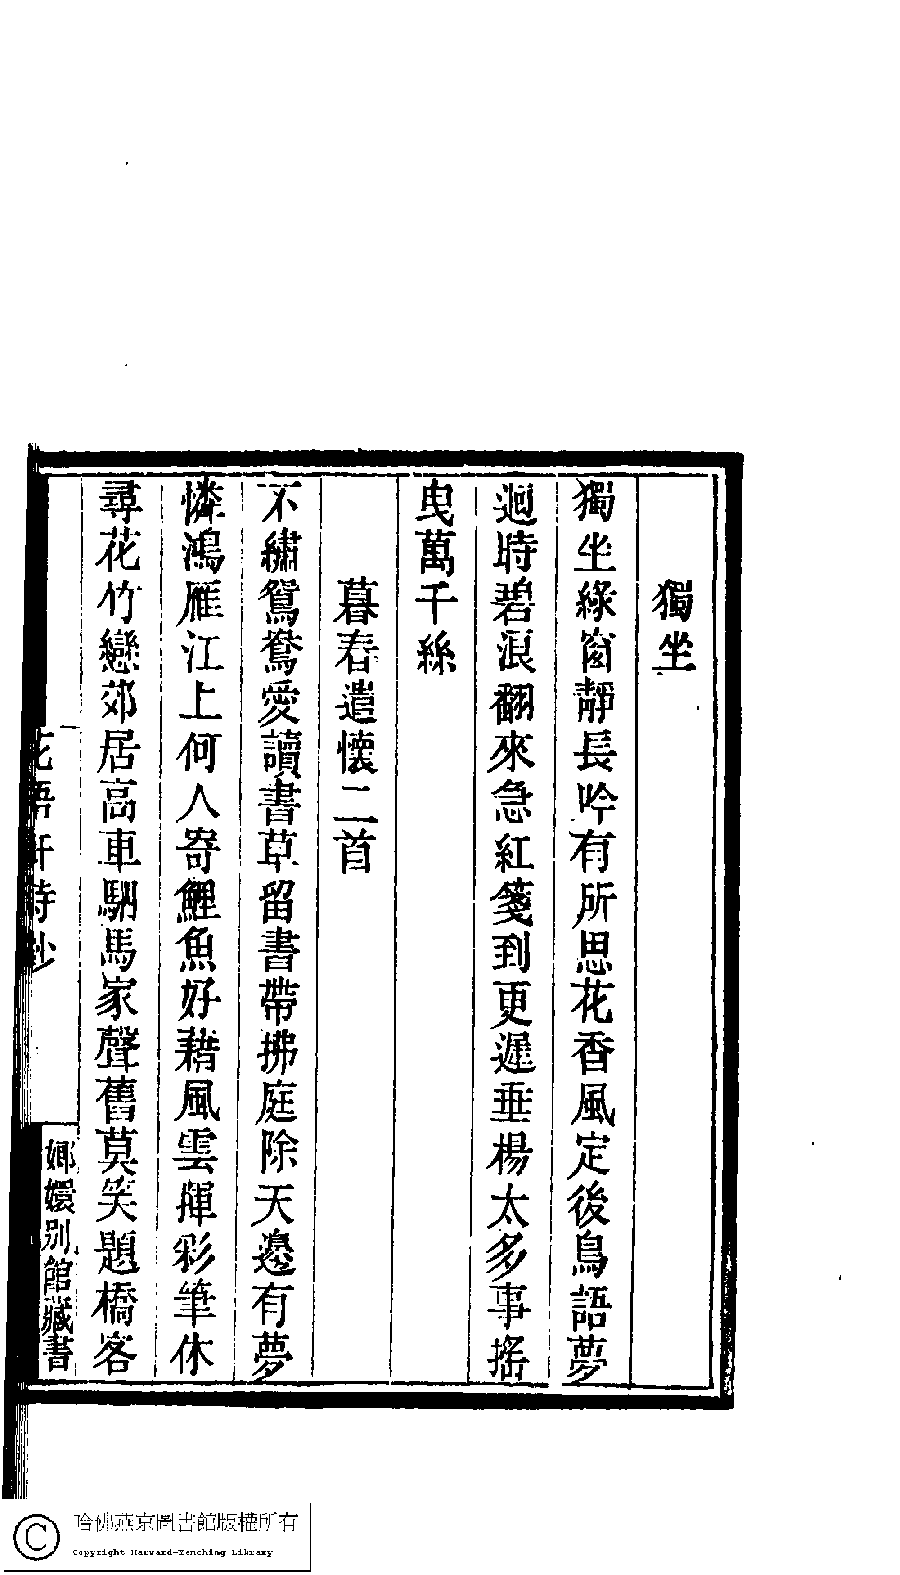 獨坐
獨坐綠窗靜長吟有所思花香風定後鳥語夢
迴時碧浪翻來急紅箋到更遲垂楊太多事搖
曳萬千絲
暮春遣懷二首
不繡鴛鴦愛讀書草留書帶拂庭除天邊有夢
憐鴻雁江上何人寄鯉魚好藉風雲揮彩筆休
尋花竹戀郊居高車駟馬家聲舊莫笑題橋客
花語軒詩鈔
嫏嬛別館藏書
哈佛燕京圖書館版權所有
Copyright Harvard-Yenching Library